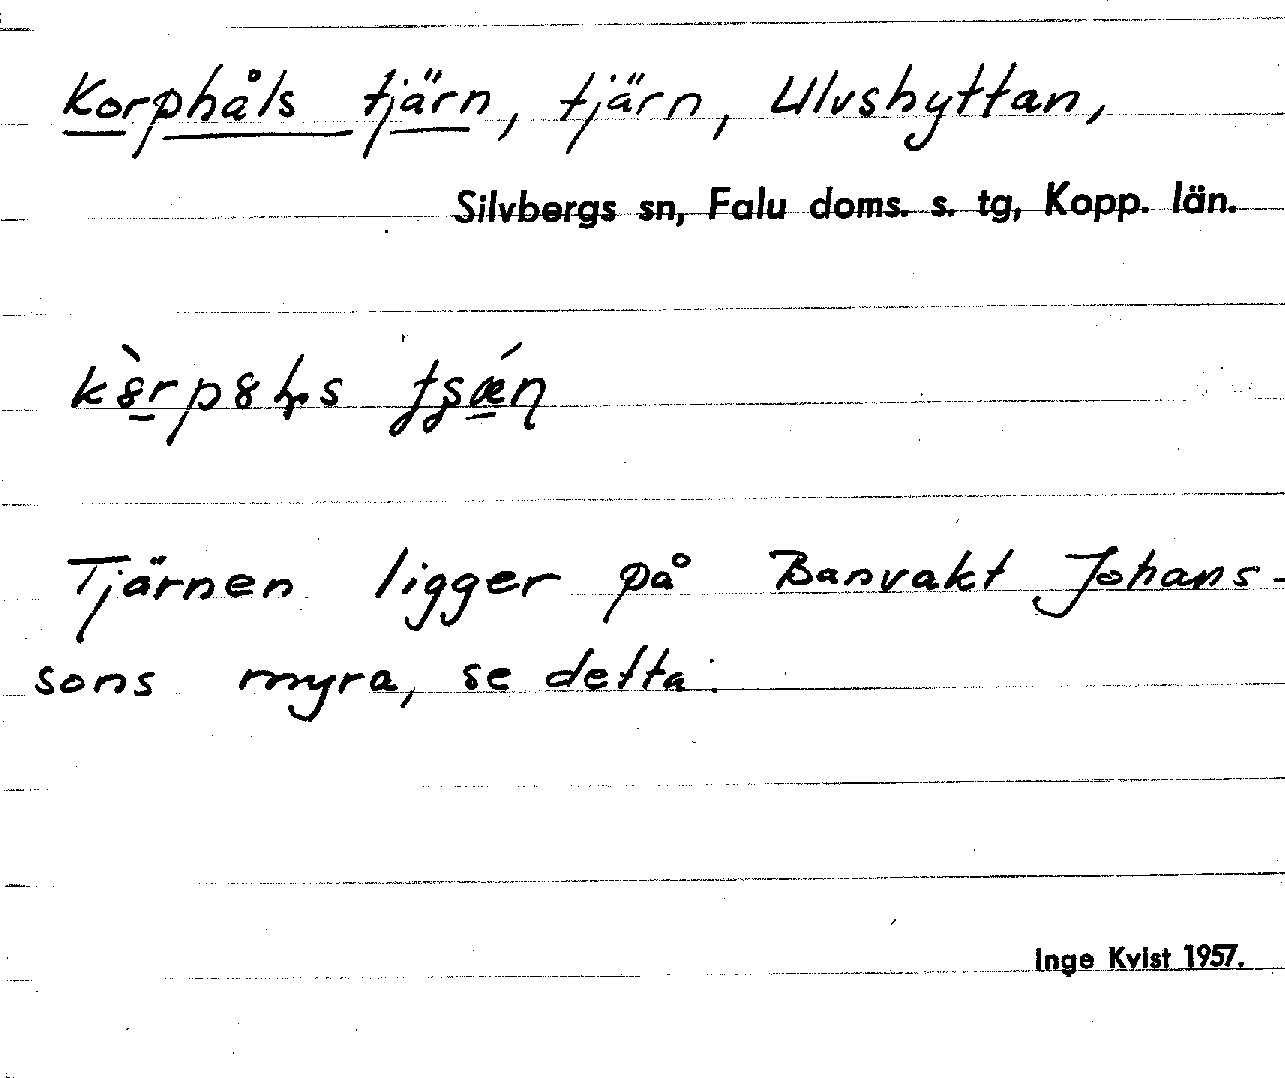 Korphåls tjärn, tjärn, Ulvshyttan,
Silvbergs sn, Falu doms. s. tg, Kopp. län.
Tjärnen ligger på Banvakt Johans-
sons myra, se detta.
Inge Kvist 1957.